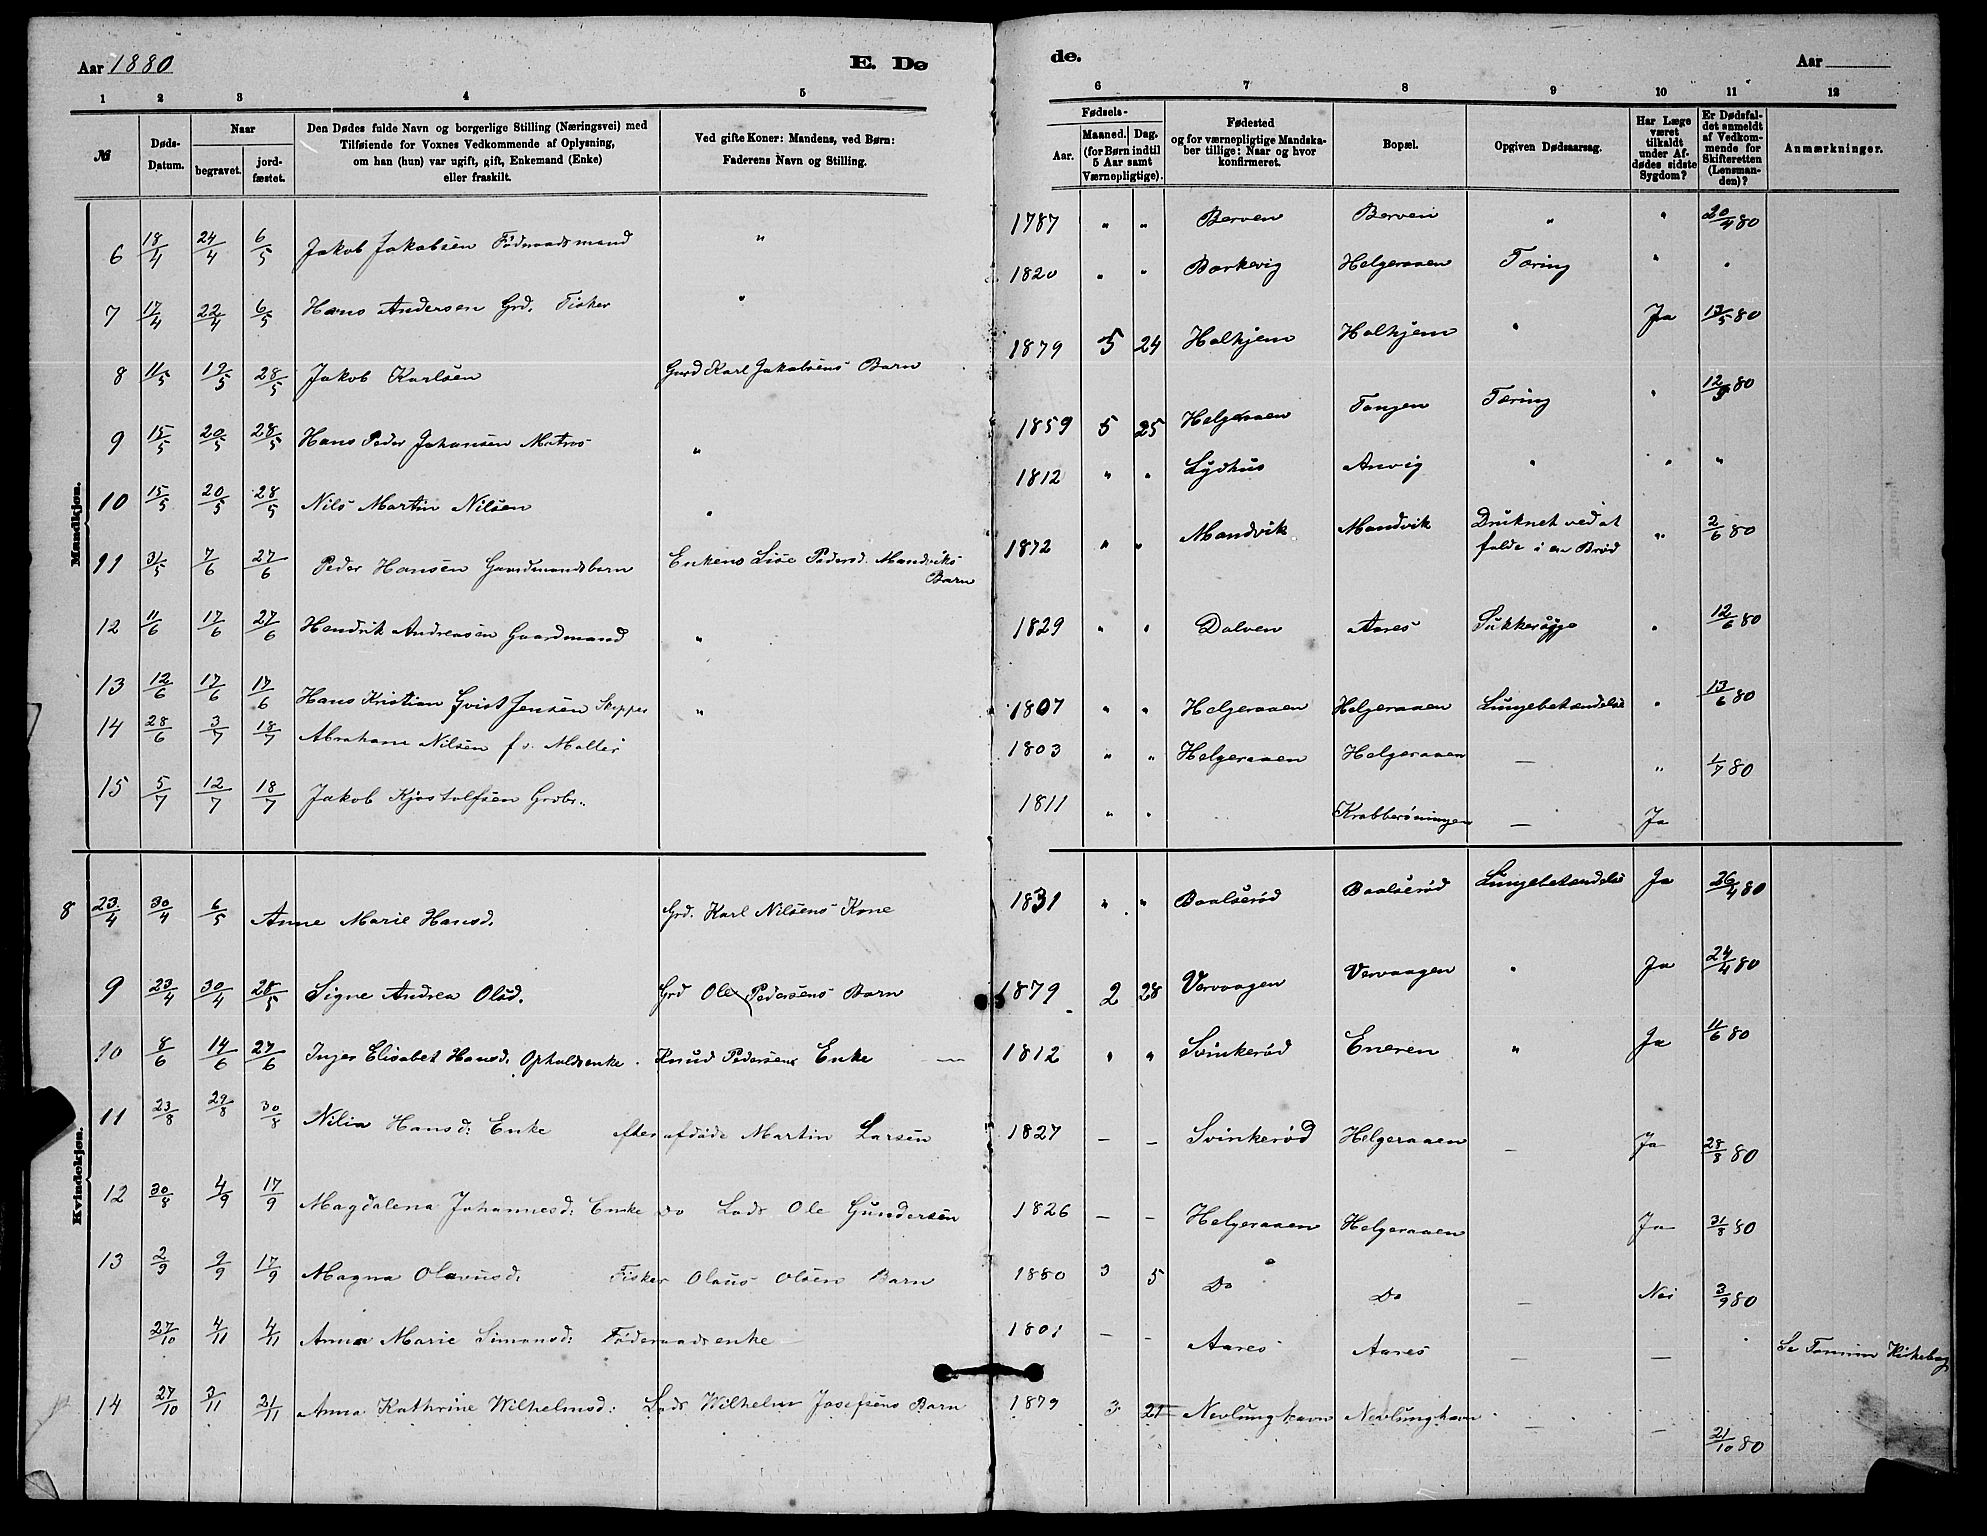 Aar 1880 E. Dø de. Aar
1 2 3 4 5 6 7 8 9 10 11 12
№
Døds-Datum.
Naar
begravet.
jord-fæstet.
Den Dødes fulde Navn og borgerlige Stilling (Næringsvei) med
Tilføiende for Voxnes Vedkommende af Oplysning,
om han (hun) var ugift, gift, Enkemand (Enke)
eller fraskilt.
Ved gifte Koner: Mandens, ved Børn:
Faderens Navn og Stilling.
Fødsels-
Aar.
Maaned. Dag.
(for Børn indtil
5 Aar samt
Værnepligtige).
Fødested
og for værnepligtige Mandska-
ber tillige: Naar og hvor
konfirmeret.
Bopæl.
Opgiven Dødsaarsag.
Har Læge
været
tilkaldt
under Af-
dødes sidste
Sygdom?
Er Dødsfal-
det anmeldt
af Vedkom-
mende for
Skifteretten
(Lensman-
den)?
Anmærkninger.
Mandkjøn.
6 18/4 24/4 6/5 Jakob Jakobsen Føderaadsmand " 1787 " " Berven Berven " " 20/4 80
7 17/4 22/4 6/5 Hans Andersen Grd. Fisker " 1820 " " Barkevig Helgeraaen Tæring " "
8 11/5 19/5 28/5 Jakob Karlsen Gmd Karl Jakobsens Barn 1879 5 24 Holhjem Holhjem " Ja 13/5 80
9 15/5 20/5 28/5 Hans Peder Johansen Matros " 1859 5 25 Helgeraaen Tangen Tæring " 12/5 80
10 15/5 20/5 28/5 Nils Martin Nilsen " 1812 " " Lydhus Anvig " " "
11 31/5 7/6 27/6 Peder Hansen Gaardmandsbarn Enkens Lise Pedersd. Mandviks
Barn 1872 " " Mandvik Mandvik Druknet ved at
falde i en Brød " 2/6 80
12 11/6 17/6 27/6 Hendrik Andreasen Gaardmand " 1829 " " Dolven Aares Sukkersyge " 12/6 80
13 12/6 17/6 17/6 Hans Kristian Qvist Jensen Skipper " 1807 " " Helgeraaen Helgeraaen Lungebetændelse " 13/6 80
14 28/6 3/7 18/7 Abraham Nilsen f.v. 1803 " " Helgeraaen Helgeraaen — " 1/7 80
15 5/7 12/7 18/7 Jakob Kjøstolfsen Grdbr. 1811 " " Krabberøningen — Ja
Kvindekjøn.
8 23/4 30/4 6/5 Anne Marie Hansd. Grd. Karl Nilsens Kone 1831 " " Baalserød Baalserød Lungebetændelse Ja 26/4 80
9 23/4 30/4 28/5 Signe Andrea Olsd. Grd Ole Pedersens Barn 1879 2 28 Vervaagen Vervaagen " Ja 24/4 80
10 8/6 14/6 27/6 Inger Elisabet Hansd. Opholdsenke. Knud Pedersens Enke — 1812 " " Svinkerød Eneren " Ja 11/6 80
11 23/8 29/8 30/8 Nilia Hansd: Enke efter afdøde Martin Larsen 1827 — — Svinkerød Helgeraaen — Ja 28/8 80
12 30/8 4/9 17/9 Magdalena Johannesd: Enke do Lods Ole Gundersen 1826 — — Helgeraaen Helgeraaen Ja 31/8 80
13 2/9 9/9 17/9 Magna Olavusd. Fisker Olaus Olsens Barn 1880 3 5 Do Do — Nei 3/9 80
27/10 4/11 4/11 Anna Marie Simonsd: Føderaadsenke 1801 — — Aares Aares — — Se Tanum Kirkebog
14 27/10 3/11 21/11 Anna Kathrine Wilhelmsd: Lods Wilhelm Josefsens Barn 1879 3 21 Nevlunghavn Nevlunghavn — — 21/10 80